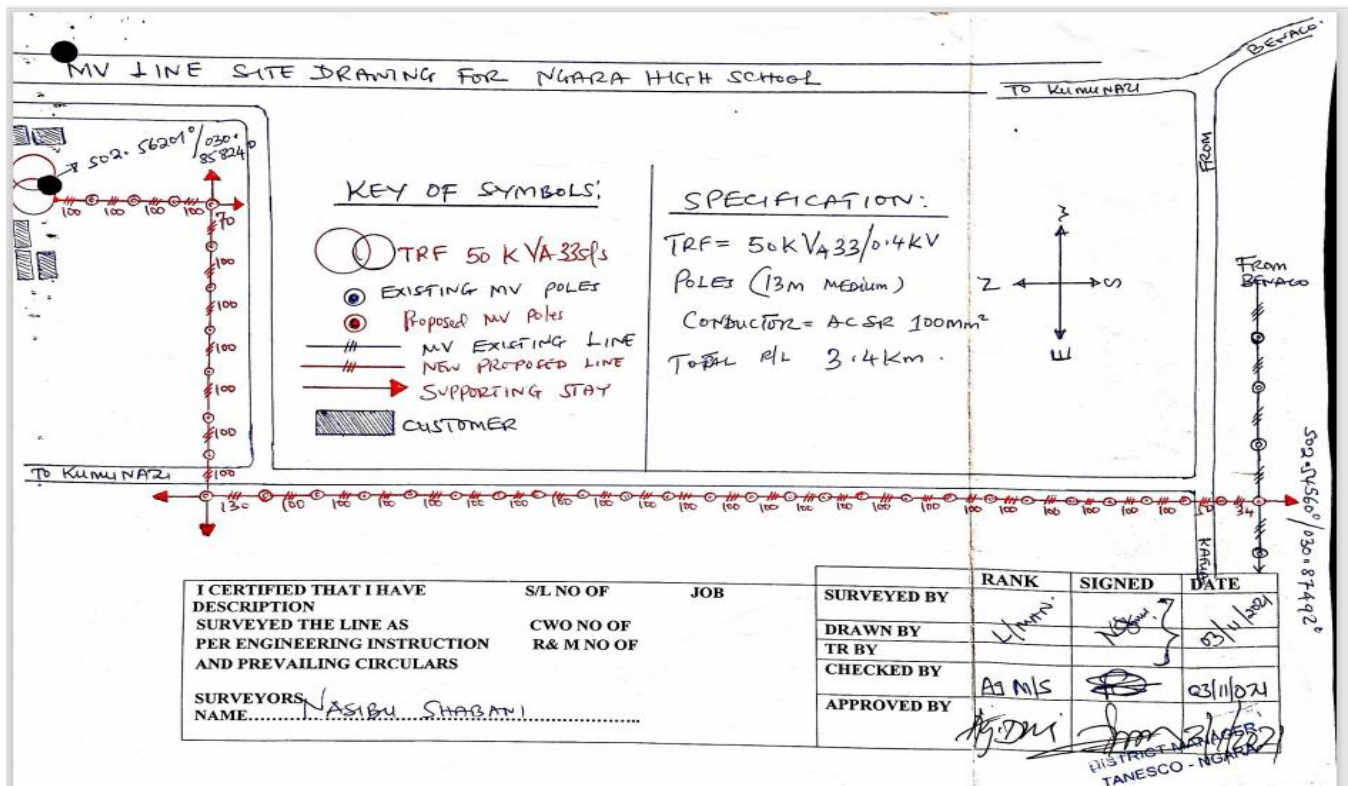 BENACO.
MV LINE SITE DRAWING FOR NGARA HIGH SCHOOL
TO KUMUNAZI
FROM
S02.56201°/030.
85824°
100 100 100 100
70
100
100
100
100
100
100
KEY OF SYMBOLS:
TRF 50 KVA 33
EXISTING MV POLES
Proposed MV Poles
MV EXISTING LINE
NEW PROPOSED LINE
SUPPORTING STAY
CUSTOMER
SPECIFICATION:
TRF = 50KVA 33/0.4KV
POLES (13M MEDIUM)
CONDUCTOR = ACSR 100mm²
TOTAL R/L 3.4Km.
W
N S
E
FROM
BENACO
S02.54560°/030.87492°
TO KUMUNAZI
130 100 100 100 100 100 100 100 100 100 100 100 100 100 100 100 100 100 100 100 100 100 100 34
I CERTIFIED THAT I HAVE S/L NO OF JOB
DESCRIPTION
SURVEYED THE LINE AS CWO NO OF
PER ENGINEERING INSTRUCTION R& M NO OF
AND PREVAILING CIRCULARS
SURVEYORS
NAME NASIBU SHABANI
RANK SIGNED DATE
SURVEYED BY
DRAWN BY L/MAN. 03/11/2021
TR BY
CHECKED BY Ag M/S 03/11/021
APPROVED BY Ag. DM
DISTRICT MANAGER
TANESCO - NGARA